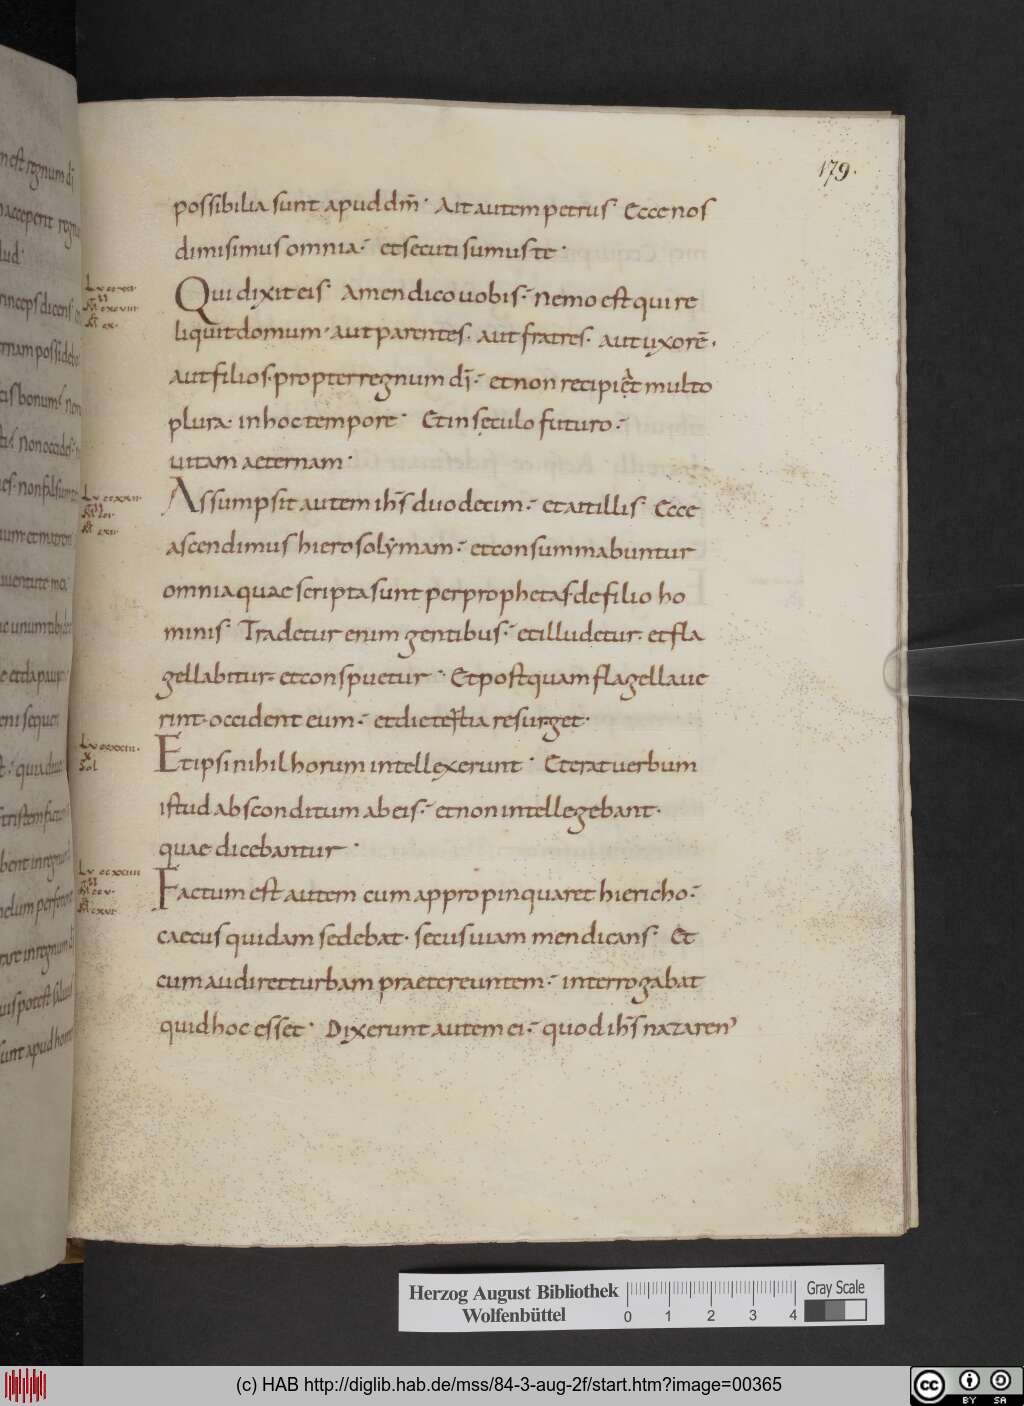 179.
possibilia sunt apud dm̄· Ait autem petrus Ecce nos
dimisimus omnia· et secuti sumus te·
Qui dixit eis Amen dico uobis· Nemo est qui re
liquit domum· aut parentes· aut fratres· aut uxorē·
aut filios· propter regnum dī· et non recipiet multo
plura· in hoc tempore· Et in sęculo futuro·
uitam aeternam·
Assumpsit autem ih̄s duodecim· et ait illis Ecce
ascendimus hierosolẏmam· et consummabuntur
omnia quae scripta sunt per prophetas· de filio ho
minis Tradetur enim gentibus· et illudetur· et fla
gellabitur· et conspuetur· Et postquam flagellaue
rint· occident eum· et die tertia resurget·
Et ipsi nihil horum intellexerunt· Et erat uerbum
istud absconditum ab eis· et non intellegebant·
quae dicebantur·
Factum est autem cum appropinquaret hiericho·
caecus quidam sedebat· secus uiam mendicans Et
cum audiret turbam praetereuntem· interrogabat
quid hoc esset· Dixerunt autem ei· quod ih̄s nazaren᾽
Herzog August Bibliothek
Wolfenbüttel
0 1 2 3 4
Gray Scale
(c) HAB http://diglib.hab.de/mss/84-3-aug-2f/start.htm?image=00365
cc BY SA